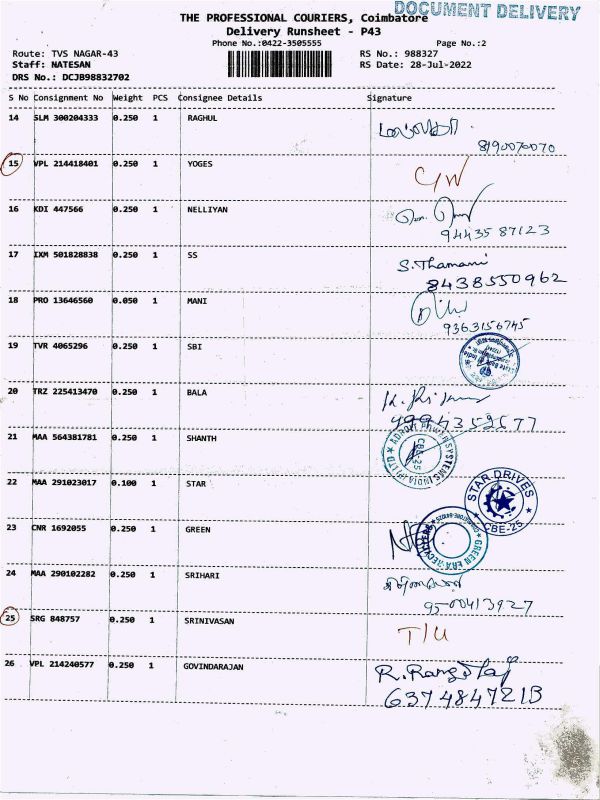 DOCUMENT DELIVERY
THE PROFESSIONAL COURIERS, Coimbatore
Delivery Runsheet - P43
Phone No.:0422-3505555
Page No.:2
Route: TVS NAGAR-43
RS No.: 988327
Staff: NATESAN
RS Date: 28-Jul-2022
DRS No.: DCJB98832702
S No Consignment No Weight PCS Consignee Details Signature
14 SLM 300204333 0.250 1 RAGHUL
8190070070
15 VPL 214418401 0.250 1 YOGES
C/W
16 KDI 447566 0.250 1 NELLIYAN
9443587123
17 IXM 501828838 0.250 1 SS
S. Thamani
8438550962
18 PRO 13646560 0.050 1 MANI
9363156745
19 TVR 4065296 0.250 1 SBI
20 TRZ 225413470 0.250 1 BALA
21 MAA 564381781 0.250 1 SHANTH
ADROIT POWER SYSTEMS INDIA (P) LTD
CBE-25
22 MAA 291023017 0.100 1 STAR
STAR DRIVES
CBE-25
23 CNR 1692055 0.250 1 GREEN
GREEN ERA
24 MAA 290102282 0.250 1 SRIHARI
9500413927
25 SRG 848757 0.250 1 SRINIVASAN
T/U
26 VPL 214240577 0.250 1 GOVINDARAJAN